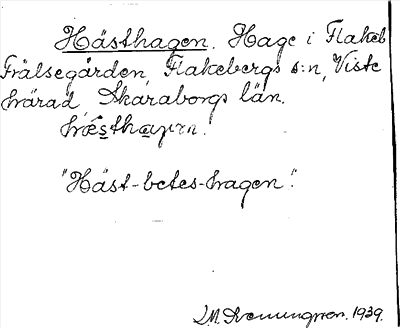 Hästhagen. Hage i Flakeb
Frälsegården, Flakebergs s:n, Viste
härad Skaraborgs län.
"Häst-betes-hagen".
1939.